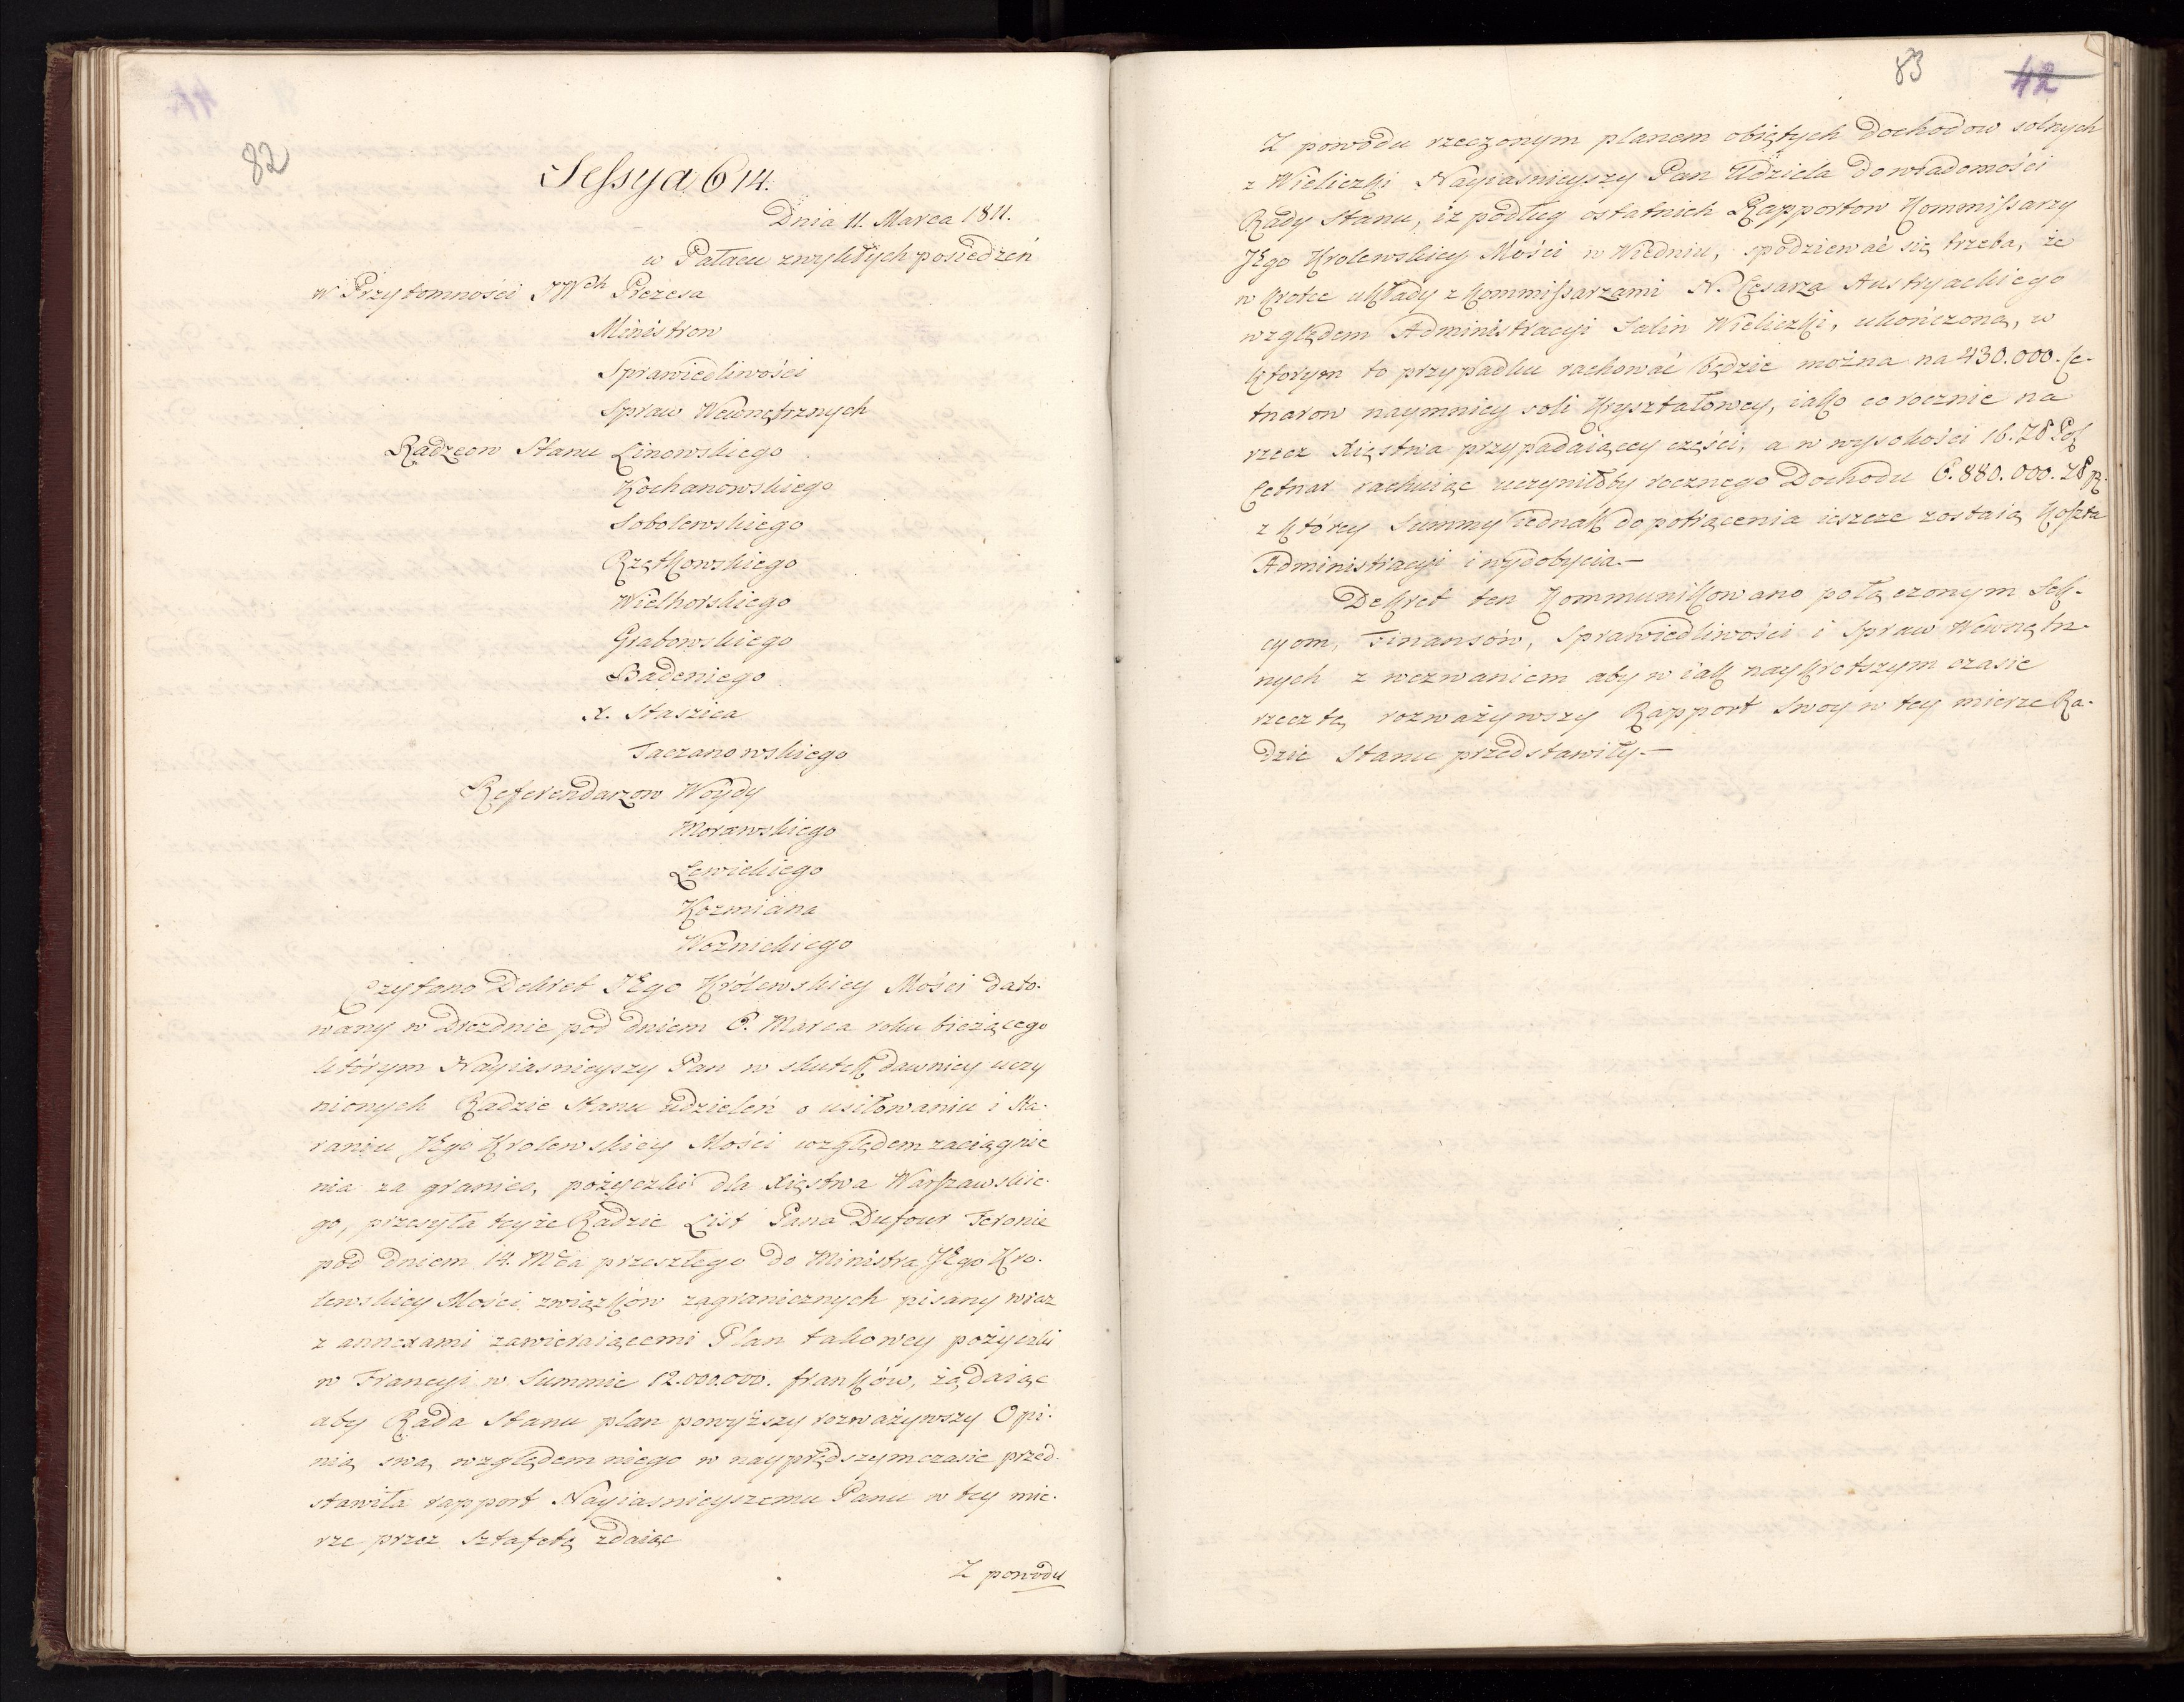 82
Sessya 614.
Dnia 11. Marca 1811.
w Pałacu zwykłych posiedzeń
w Przytomnosci JJWch Prezesa
Ministrow
Sprawiedliwości
Spraw Wewnętrznych
Radzcow Stanu Linowskiego
Kochanowskiego
Sobolewskiego
Rzętkowskiego
Wielhorskiego
Grabowskiego
Badeniego
X. Staszica
Taczanowskiego
Referendarzow Woydy
Morawskiego
Lewickiego
Kozmiana
Woznickiego
Czytano Dekret JEgo Królewskiey Mości dato-
wany w Dreznie pod dniem 6. Marca roku bieżącego
którym Nayiasnieyszy Pan w skutek dawniey uczy
nionych Radzie Stanu udzieleń o usiłowaniu i sta-
raniu JEgo Krolewskiey Mości względem zaciągnie
nia za granicą pożyczki dla Xięstwa Warszawskie-
go, przesyła teyże Radzie List Pana Dufour Feronie
pod dniem 14. Mca przeszłego do Ministra JEgo Kro-
lewskiey Mości związków zagranicznych pisany wraz
z annexami zawieraiącemi Plan takowey pożyczki
w Francyi w Summie 12.000.000. franków, żądaiąc
aby Rada Stanu plan powyższy rozważywszy Opi-
nią swą względem niego w nayprędszym czasie przed-
stawiła rapport Nayiasnieyszemu Panu w tey mie-
rze przez Sztafetę zdaiąc
Z powodu
83
42
Z powodu rzeczonym planem obiętych Dochodow solnych
z Wieliczki Nayiasnieyszy Pan Udziela do wiadomości
Rady Stanu, iz podług ostatnich Rapportow Kommissarzy
JEgo Krolewskiey Mości w Wiedniu, spodziewać się trzeba, że
w krotce układy z Kommissarzami N. Cesarza Austryackiego
względem Administracyi Salin Wieliczki, ukończoną, w
ktorym to przypadku rachować będzie można na 430.000. Ce-
tnarow naymniey soli Kryształowey, iako co rocznie na
rzecz Xięstwa przypadaiącey części, a w wysokości 16. Zł Pol
Cetnar rachuiąc uczyniłoby rocznego Dochodu 6.880.000. Zł p.
z którey Summy iednak do potrącenia ieszcze zostaią Koszta
Administracyi i wydobycia.—
Dekret ten Kommunikowano połączonym Sek-
cyom, Finansów, Sprawiedliwości i Spraw Wewnętrz-
nych z wezwaniem aby w iak naykrotszym czasie
rzecz tę rozważywszy Rapport swoy w tey mierze Ra-
dzie Stanu przedstawiły.—